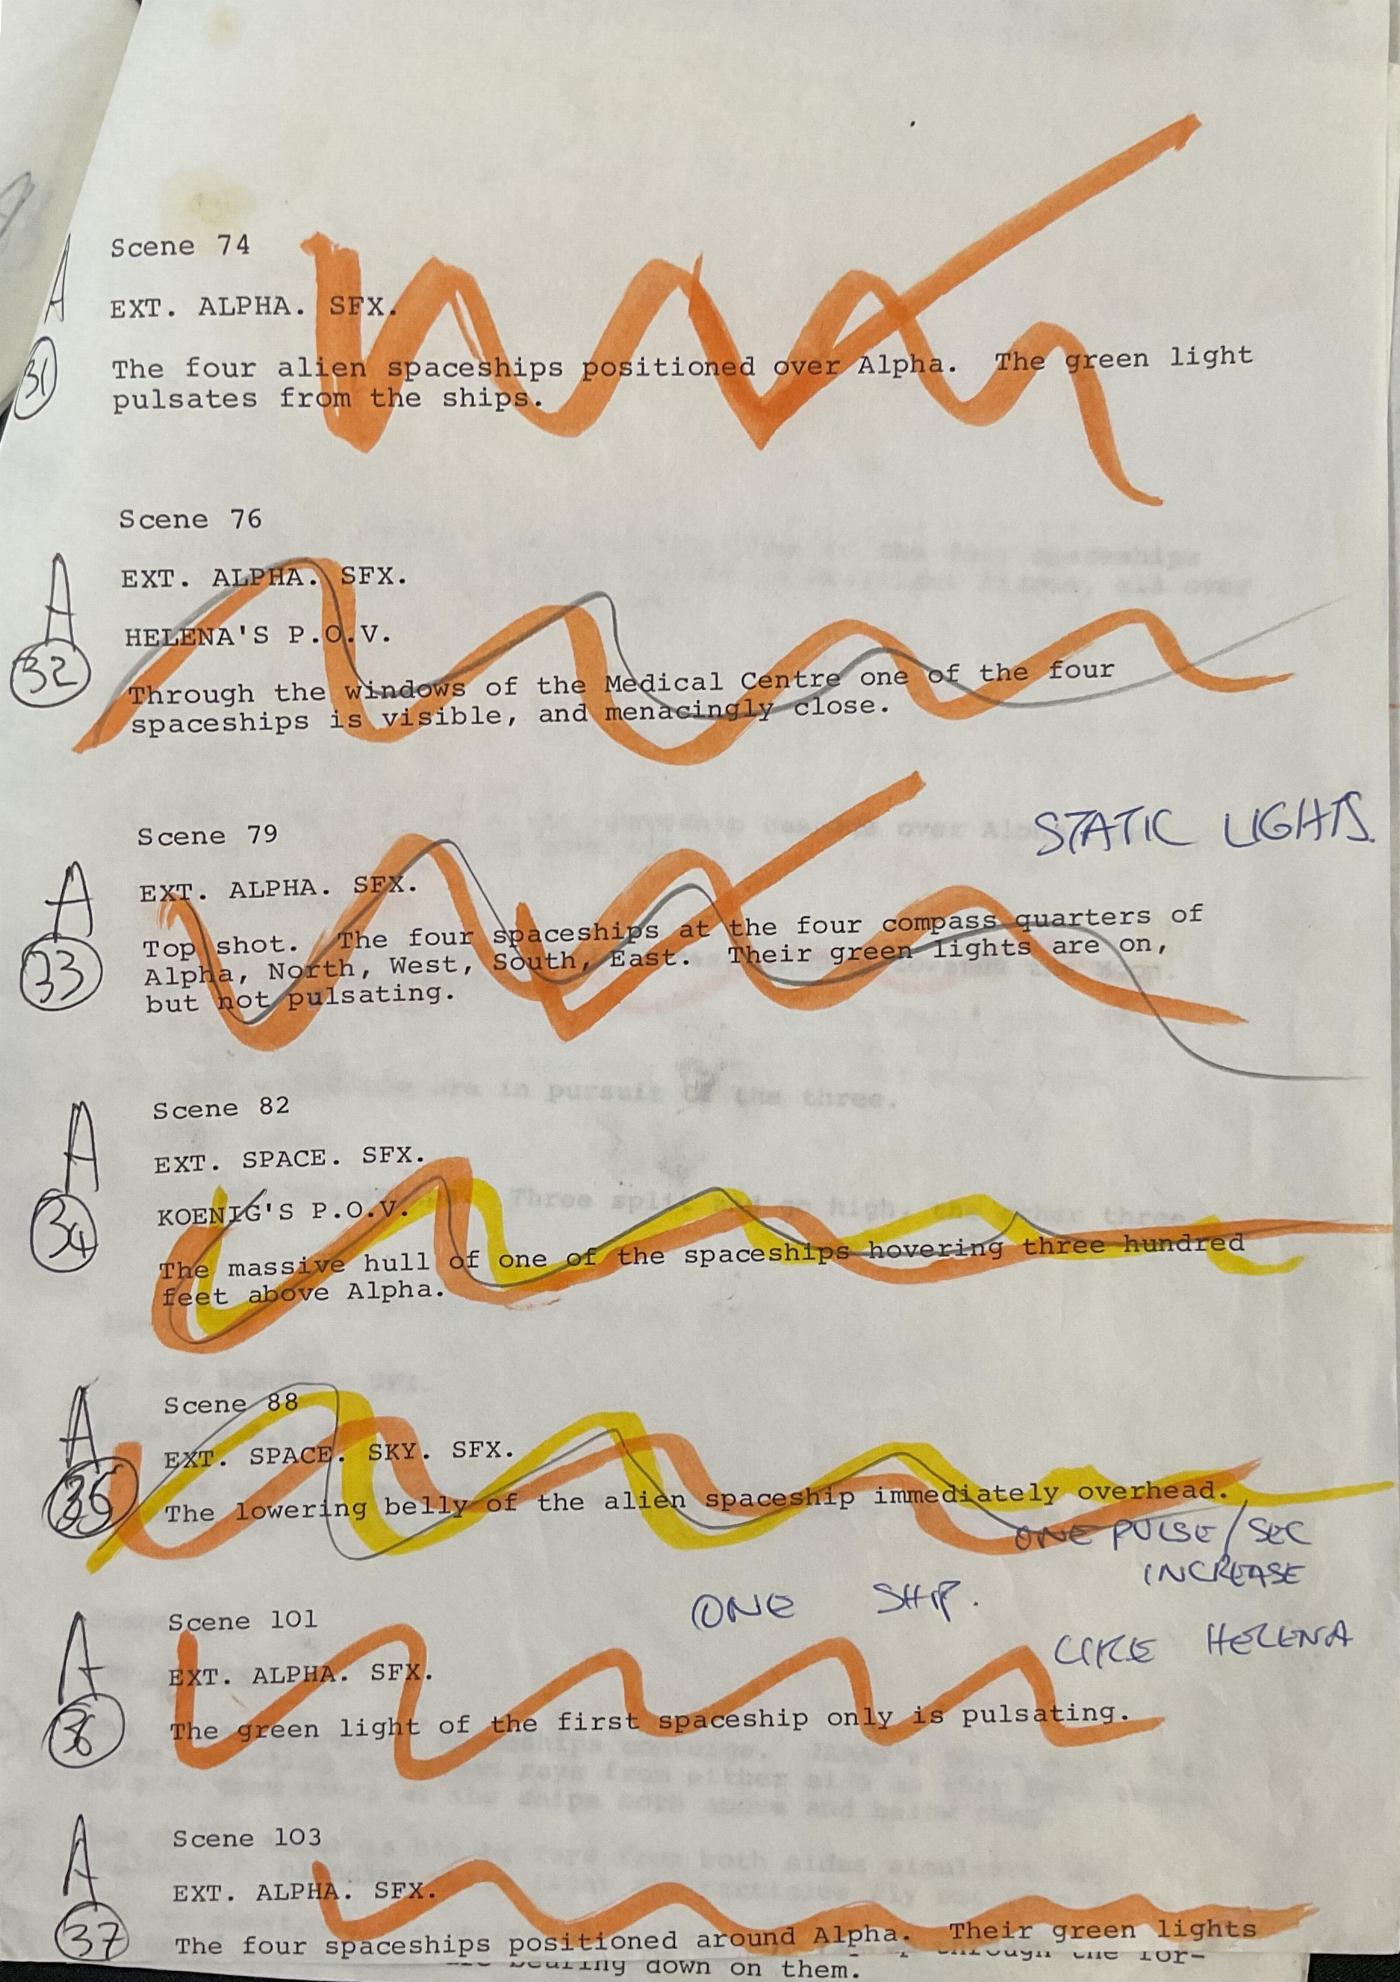 Scene 74
A
EXT. ALPHA. SFX.
31
The four alien spaceships positioned over Alpha. The green light
pulsates from the ships.
Scene 76
A
EXT. ALPHA. SFX.
HELENA'S P.O.V.
32
Through the windows of the Medical Centre one of the four
spaceships is visible, and menacingly close.
STATIC LIGHTS.
Scene 79
A
EXT. ALPHA. SFX.
33
Top shot. The four spaceships at the four compass quarters of
Alpha, North, West, South, East. Their green lights are on,
but not pulsating.
Scene 82
A
EXT. SPACE. SFX.
34
KOENIG'S P.O.V.
The massive hull of one of the spaceships hovering three hundred
feet above Alpha.
Scene 88
A
EXT. SPACE. SKY. SFX.
35
The lowering belly of the alien spaceship immediately overhead.
ONE PULSE/SEC
INCREASE
ONE SHIP.
LIKE HELENA
Scene 101
A
EXT. ALPHA. SFX.
36
The green light of the first spaceship only is pulsating.
Scene 103
A
EXT. ALPHA. SFX.
37
The four spaceships positioned around Alpha. Their green lights
through the for-
bearing down on them.